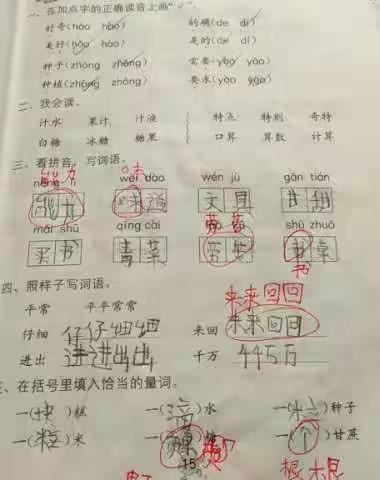 一、在加点字的正确读音上画“✓”。
好奇(hǎo hào) 的确(de dí)
美好(hǎo hào) 是的(de dí)
种子(zhǒng zhòng) 需要(yāo yào)
种植(zhǒng zhòng) 要求(yāo yào)
二、我会读。
汁水 果汁 汁液 特点 特别 奇特
白糖 冰糖 糖果 口算 算数 计算
三、看拼音，写词语。
能力 味
wèi dào wén jù gān tián
能力 味道 文具 甘甜
劳苦
mǎi shū qīng cài shū zhuō
买书 青菜 书桌
书
四、照样子写词语。
平常 平平常常
来来回回
仔细 仔仔细细 来回 来来回回
进出 进进出出 千万
五、在括号里填入恰当的量词。
一(块)糕 一(滴)水 一( )种子
一(粒)米 一( )甘蔗
15
根 根